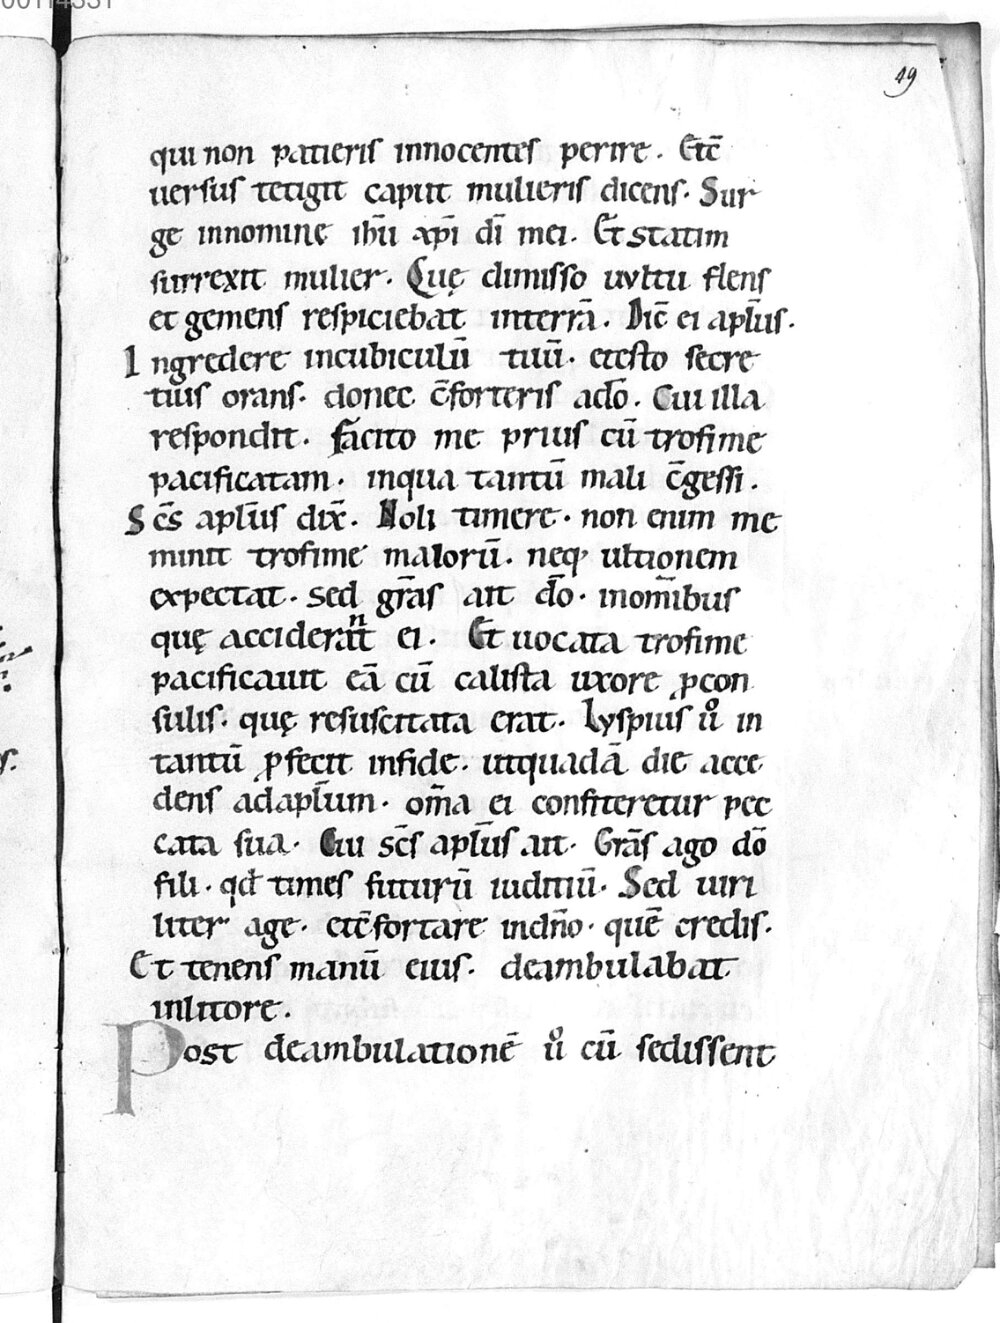 49
qui non patieris innocentes perire. Etc̄
uersus tetigit caput mulieris dicens. Sur
ge innomine ih̄u xp̄i dī mei. Et statim
surrexit mulier. Quę dimisso uultu flens
et gemens respiciebat interrā. Dic̄ ei apl̄us.
Ingredere incubiculū tuū. etesto secre
tius orans. donec c̄forteris adō. Cui illa
respondit. facito me prius cū trofime
pacificatam. inqua tantū mali c̄gessi.
Sc̄s apl̄us dix̄. Noli timere. non enim me
minit trofime malorū. neq; ultionem
expectat. sed grās ait dō. inom̄ibus
quę acciderant ei. Et uocata trofime
pacificauit eā cū calista uxore ꝓcon
sulis. quę resuscitata erat. Lyspius ů in
tantū ꝓfecit infide. utquadā die acce
dens adapl̄um. om̄a ei confiteretur pec
cata sua. Cui sc̄s apl̄us ait. Grās ago dō
fili. qd̄ times futurū iuditiū. Sed uiri
liter age. etc̄fortare indn̄o. quē credis.
Et tenens manū eius. deambulabat
inlitore.
Post deambulationē ů cū sedissent